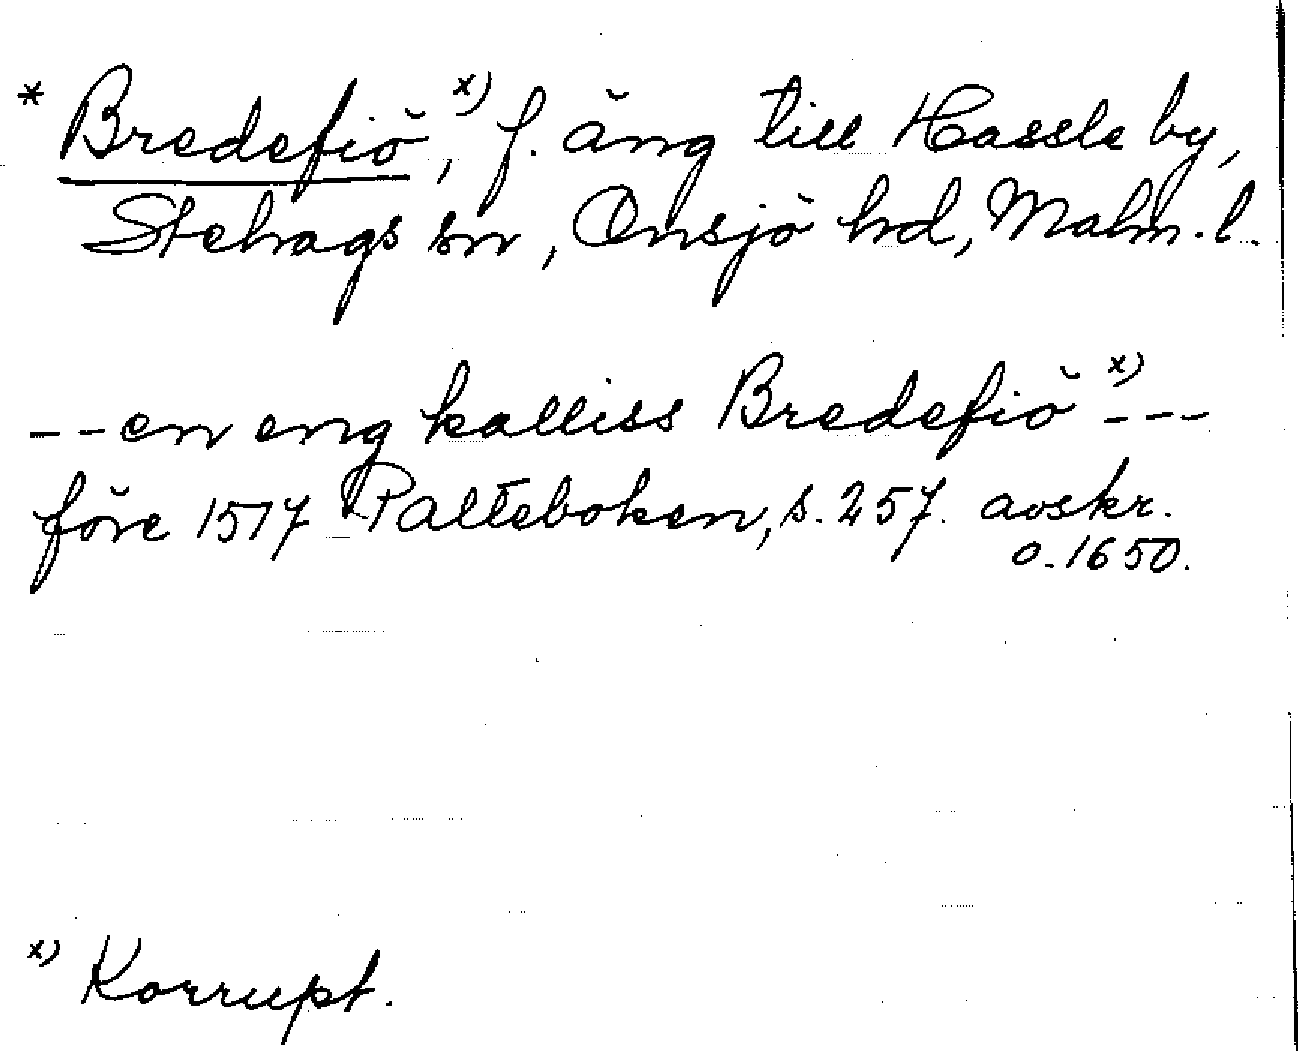 * Bredefiö, x) f. äng till Hassle by,
Stehags sn, Onsjö hd, Malm. l.
-- en eng kalliss Bredefiö x) ---
före 1517 Palteboken, s. 257. avskr.
o. 1650.
x) Korrupt.